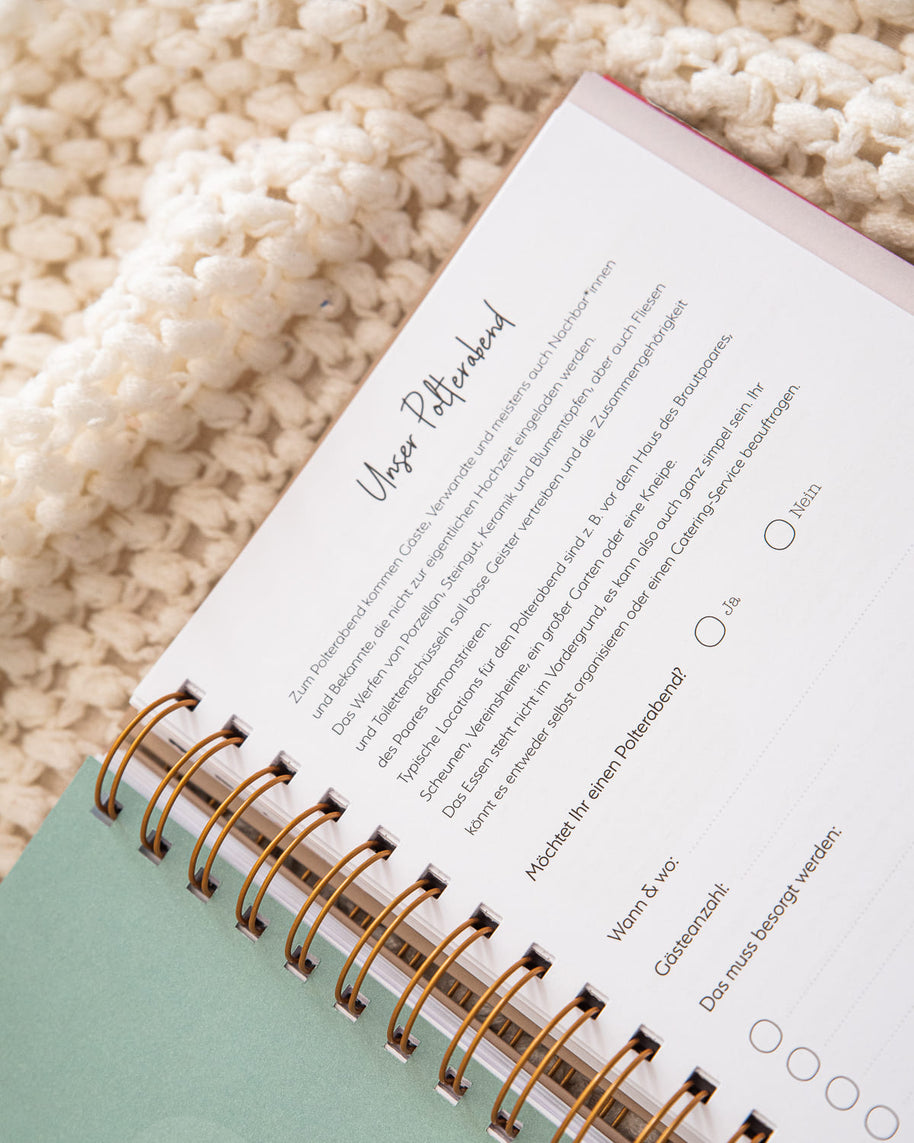 Unser Polterabend
Zum Polterabend kommen Gäste, Verwandte und meistens auch Nachbar*innen
und Bekannte, die nicht zur eigentlichen Hochzeit eingeladen werden.
Das Werfen von Porzellan, Steingut, Keramik und Blumentöpfen, aber auch Fliesen
und Toilettenschüsseln soll böse Geister vertreiben und die Zusammengehörigkeit
des Paares demonstrieren.
Typische Locations für den Polterabend sind z. B. vor dem Haus des Brautpaares,
Scheunen, Vereinsheime, ein großer Garten oder eine Kneipe.
Das Essen steht nicht im Vordergrund, es kann also auch ganz simpel sein. Ihr
könnt es entweder selbst organisieren oder einen Catering-Service beauftragen.
Möchtet Ihr einen Polterabend? Ja Nein
Wann & wo:
Gästeanzahl:
Das muss besorgt werden: